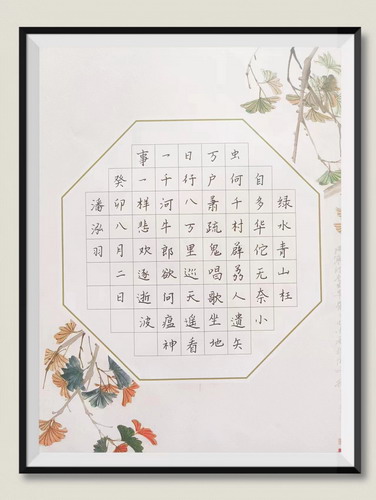 绿水青山枉
自多华佗无奈小
虫何千村薜荔人遗矢
万户萧疏鬼唱歌坐地
日行八万里巡天遥看
一千河牛郎欲问瘟神
事一样悲欢逐逝波
癸卯八月二日
潘泓羽